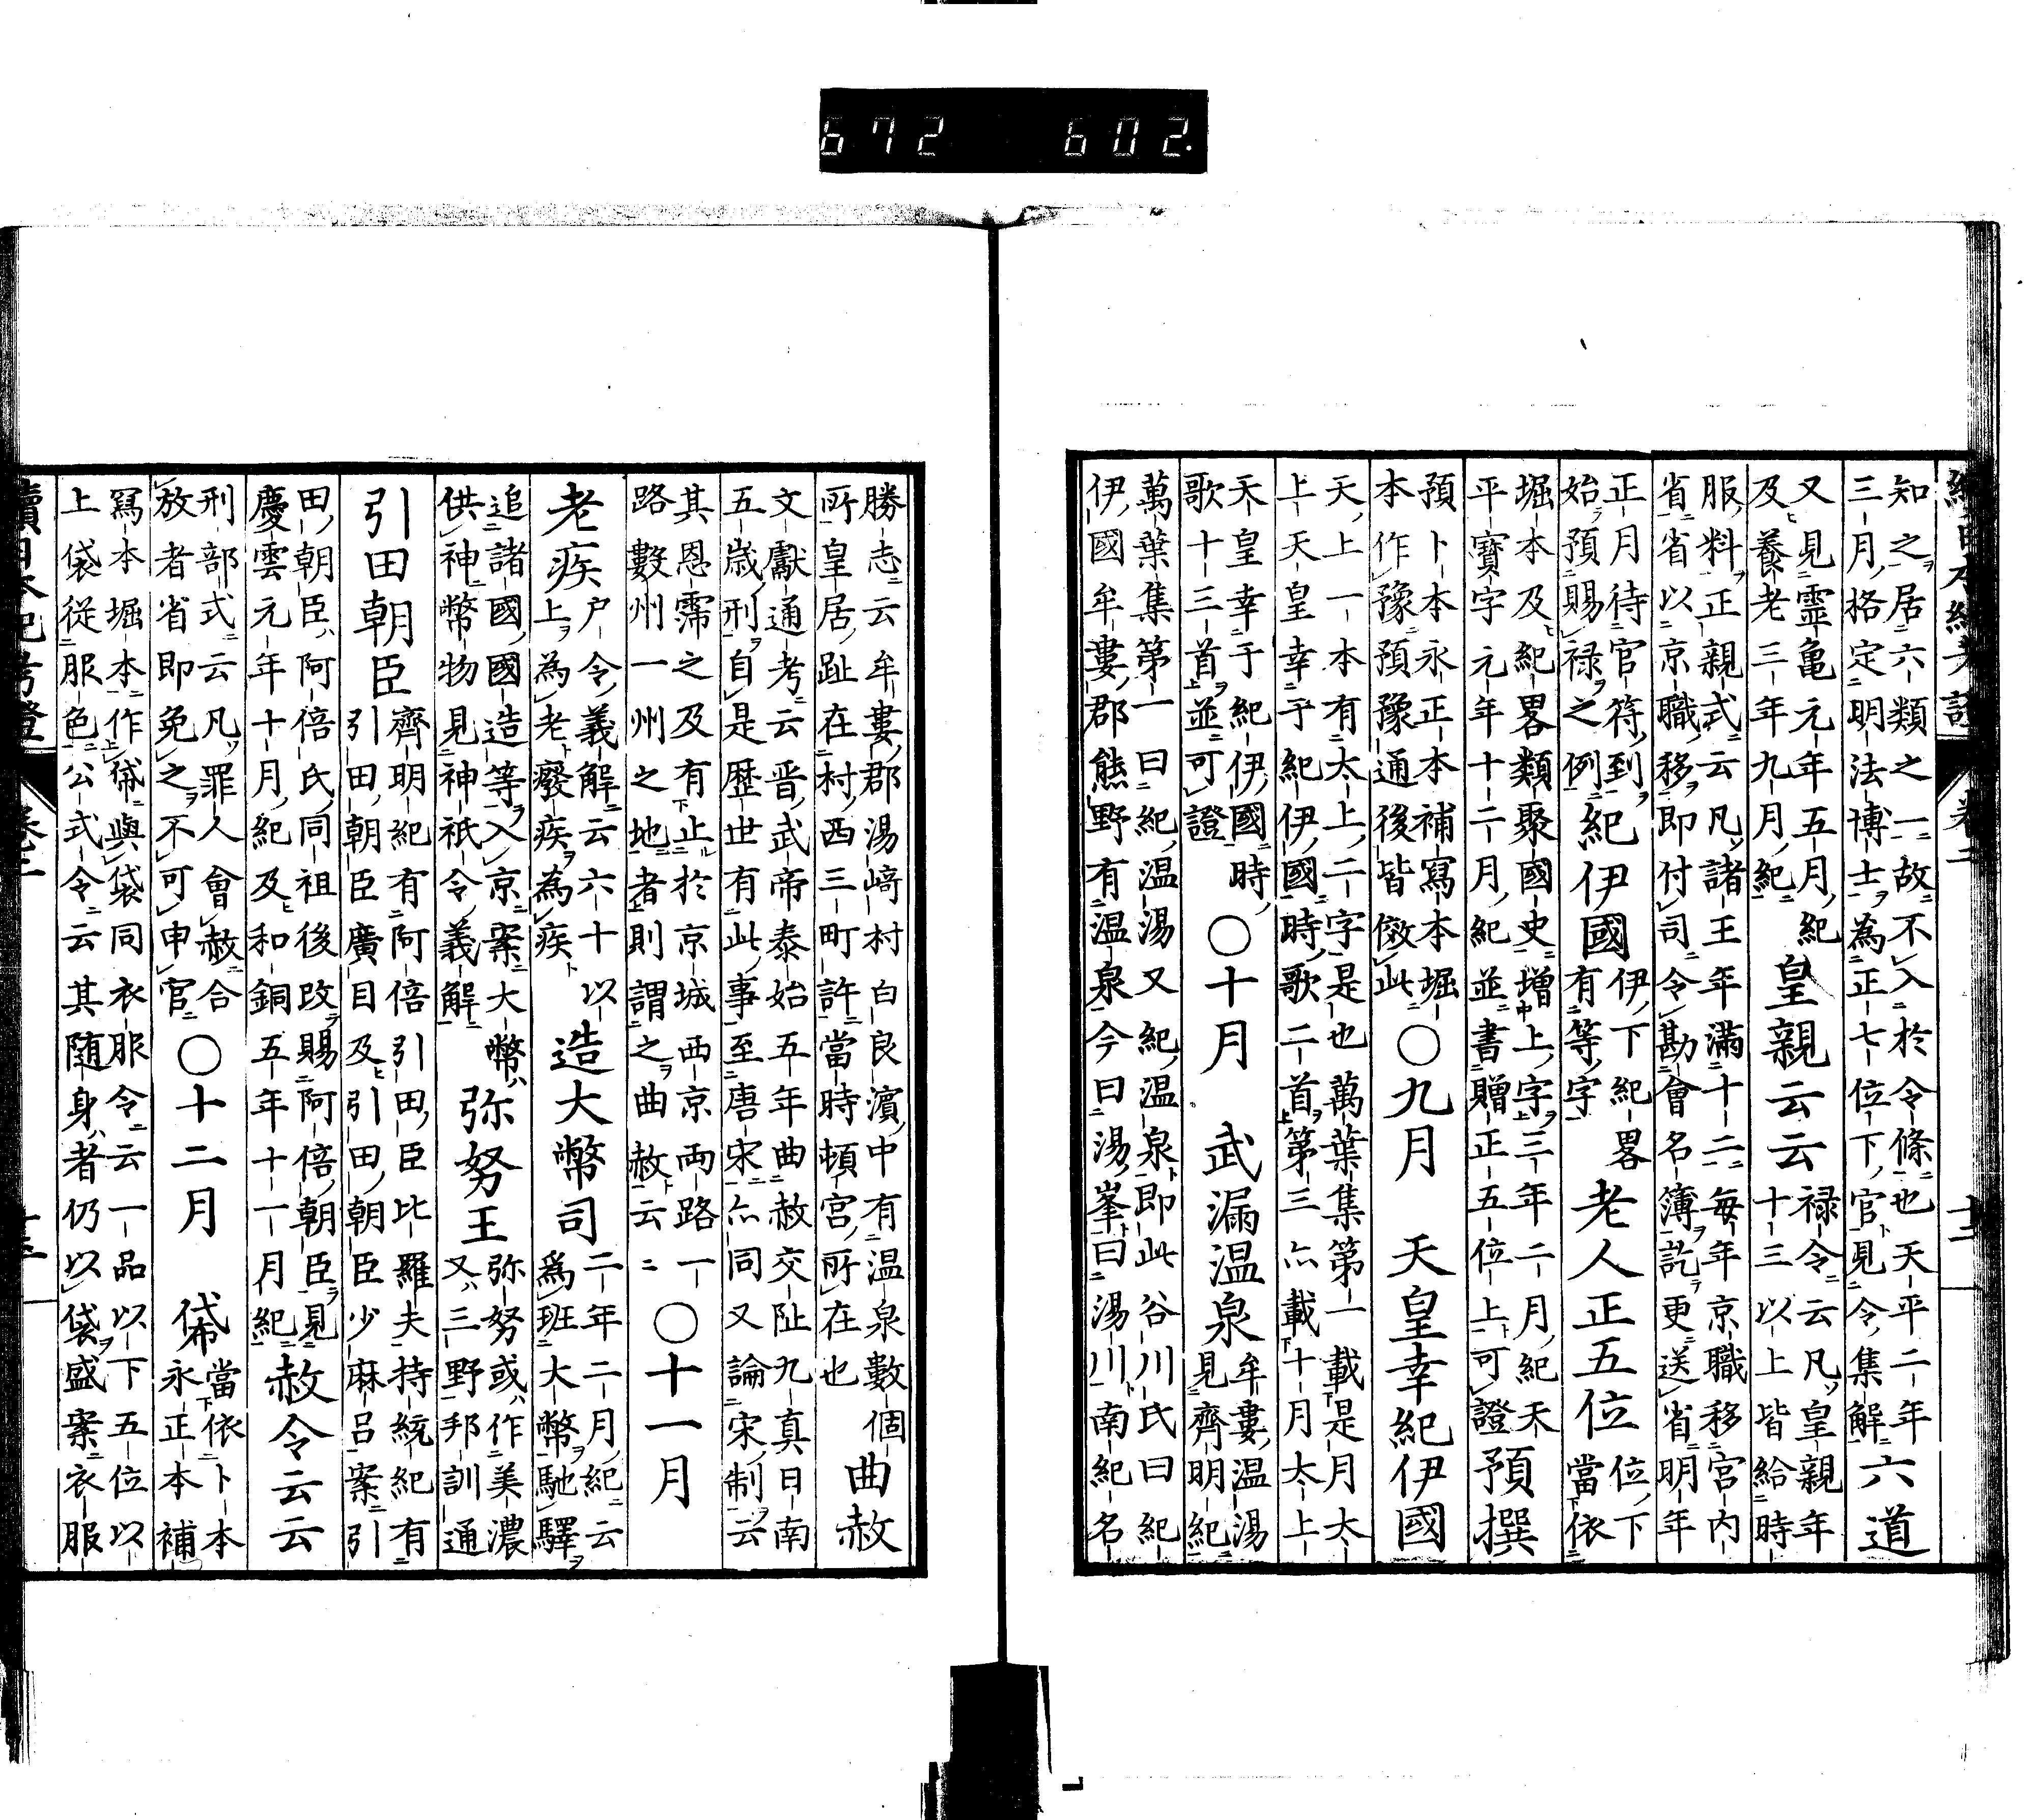 672 602.
知之居六類之一故不入於令條也天平二年
三月格定明法博士為正七位下官見令集解
六道
又見靈亀元年五月紀
及養老三年九月紀
皇親云云
禄令云凡皇親年
十三以上皆給時
服料正親式云凡諸王年滿十二每年京職移宮内
省省以京職移即付司令勘會名簿訖更送省明年
正月待官符到
始預賜禄之例
紀伊國
伊下紀畧
有等字
老人正五位
位下
當依
堀本及紀畧類聚國史增上字三年二月紀天
平寶字元年十二月紀並書贈正五位上可證
預撰
預卜本永正本補寫本堀
本作豫預豫通後皆倣此
○九月
天皇幸紀伊國
天上一本有太上二字是也萬葉集第一載是月太
上天皇幸于紀伊國時歌二首第三亦載十月太上
天皇幸于紀伊國時
歌十三首並可證
○十月
武漏温泉
牟婁温湯
見齊明紀
萬葉集第一曰紀温湯又紀温泉即此谷川氏曰紀
伊國牟婁郡熊野有温泉今曰湯峯曰湯川南紀名
勝志云牟婁郡湯﨑村白良濱中有温泉數個
所皇居趾在村西三町許當時頓宮所在也
曲赦
文獻通考云晋武帝泰始五年曲赦交阯九真日南
五歳刑自是歴世有此事至唐宋亦同又論宋制云
其恩霈之及有止於京城西京兩路一
路數州一州之地者則謂之曲赦云云
○十一月
老疾
户令義解云六十以
上為老癈疾為疾
造大幣司
二年二月紀云
為班大幣馳驛
追諸國國造等入京案大幣
供神幣物見神祇令義解
弥努王
弥努或作美濃
又三野邦訓通
引田朝臣
齊明紀有阿倍引田臣比羅夫持統紀有
引田朝臣廣目及引田朝臣少麻呂案引
田朝臣阿倍氏同祖後改賜阿倍朝臣見
慶雲元年十月紀及和銅五年十一月紀
赦令云云
刑部式云凡罪人會赦合
放者省即免之不可申官
○十二月
帒
當依卜本
永正本補
寫本堀本作帒與袋同衣服令云一品以下五位以
上袋從服色公式令云其隨身者仍以袋盛案衣服
續日本紀考證 卷二